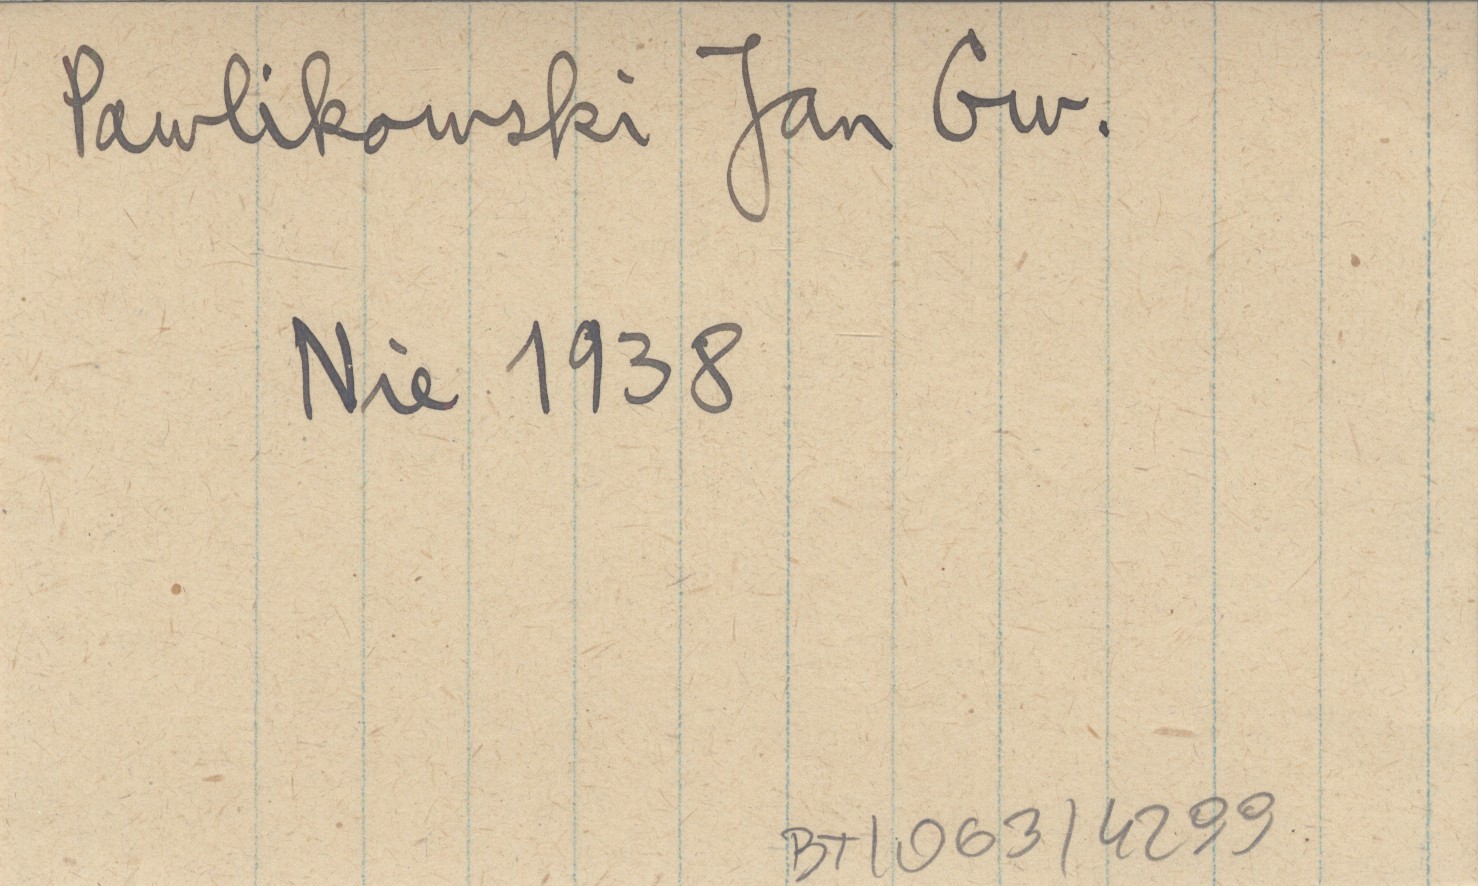 Pawlikowski Jan Gw.
Nie 1938
BT/063/4299